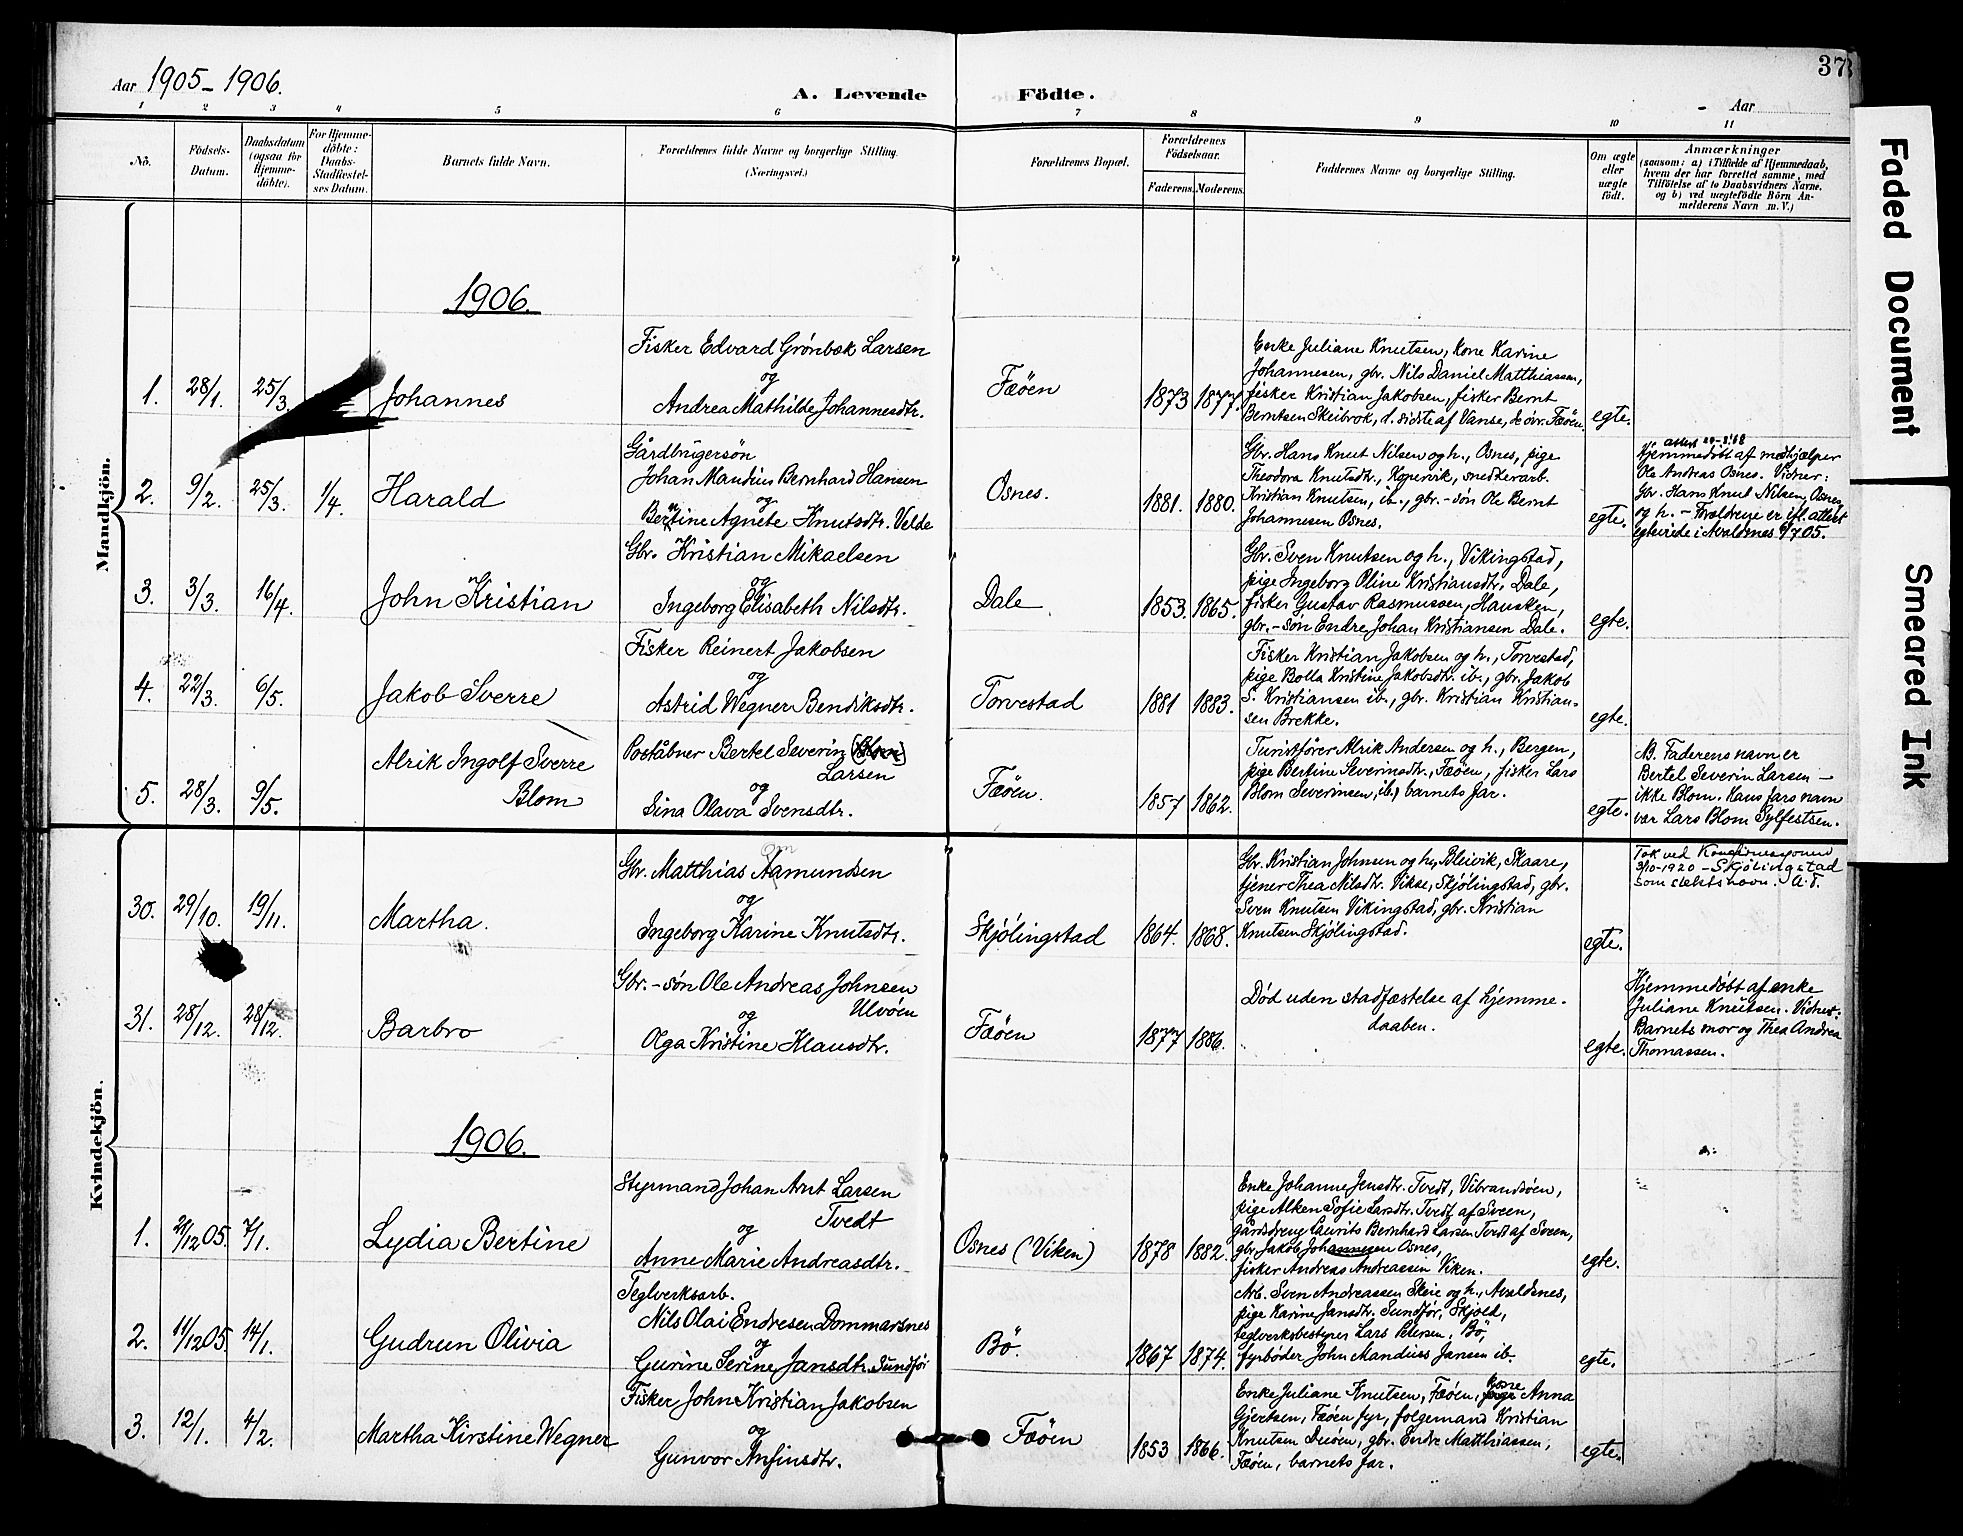 Aar 1905-1906.
A. Levende Födte.
37
Aar
1 2 3 4 5 6 7 8 9 10 11
No.
Födsels-Datum.
Daabsdatum (ogsaa for Hjemmedöbte).
For Hjemmedöbte: Daabs-Stadfæstelses Datum.
Barnets fulde Navn.
Forældrenes fulde Navne og borgerlige Stilling. (Næringsvei.)
Forældrenes Bopæl.
Forældrenes Födselsaar.
Faderens. Moderens.
Faddernes Navne og borgerlige Stilling.
Om ægte eller uægte födt.
Anmærkninger
(saasom: a) i Tilfælde af Hjemmedaab, hvem der har forrettet samme, med Tilföielse af to Daabsvidners Navne, og b) ved uægtefödte Börn Anmelderens Navn m. V.)
Mandkjön.
1906.
1. 28/1. 25/3. Johannes
Fisker Edvard Grönbæk Larsen
og
Andrea Mathilde Johannesdtr.
Fæöen
1873 1877.
Enke Juliane Knutsen, kone Karine
Johannesen, gbr. Nils Daniel Matthiassen,
fisker Kristian Jakobsen, fisker Bernt
Berntsen Skeibrok, d. sidste af Vanse, de övr. Fæöen.
egte.
2. 9/2. 25/3. 1/4. Harald
Gårdbrugersön
Johan Mandius Bernhard Hansen
og
Berntine Agnete Knutsdtr. Velde
Osnes.
1881. 1880.
Gbr. Hans Knut Nilsen og h., Osnes, pige
Theodora Knutsdtr., Kopervik, snedkerarb.
Kristian Knutsen, ib., gbr.-sön Ole Bernt
Johannesen Osnes.
egte.
Hjemmedöbt af nöthjælper
Ole Andreas Osnes. Vidner:
Gbr. Hans Knut Nilsen, Osnes,
og h. - Forældrene er ifl. attest
egteviede i Avaldsnes 9/7 05.
3. 3/3. 16/4. John Kristian
Gbr. Kristian Mikaelsen
og
Ingeborg Elisabeth Nilsdtr.
Dale
1853. 1865.
Gbr. Sven Knutsen og h., Vikingstad,
pige Ingeborg Oline Kristiansdtr. Dale,
fisker Gustav Rasmussen, Hausken,
gbr.-sön Endre Johan Kristiansen Dale.
egte.
4. 22/3. 6/5. Jakob Sverre
Fisker Reinert Jakobsen
og
Astrid Wegner Bendiksdtr.
Torvestad
1881 1883.
Fisker Kristian Jakobsen og h., Torvestad,
pige Bolla Kristine Jakobsdtr. ib., gbr. Jakob
S. Kristiansen ib., gbr. Kristian Kristian-
sen Brekke.
egte.
5. 28/3. 9/5. Alrik Ingolf Sverre
Blom
Poståbner Bertel Severin (Blom)
Larsen
og
Sina Olava Svensdtr.
Fæöen.
1857 1862.
Turistförer Alrik Andersen og h., Bergen,
pige Bertine Severinsdtr., Fæöen, fisker Lars
Blom Severinsen, ib., barnets far.
egte.
NB. Faderens navn er
Bertel Severin Larsen -
ikke Blom. Hans fars navn
var Lars Blom Sylfestsen.
Kvindekjön.
30. 29/10. 19/11. Martha.
Gbr. Matthias Aamundsen
og
Ingeborg Karine Knutsdtr.
Skjölingstad
1864. 1868.
Gbr. Kristian Johnsen og h., Bleivik, Skaare,
tjener Thea Nilsdtr. Vikse, Skjölingstad, gbr.
Sven Knutsen Vikingstad, gbr. Kristian
Knutsen Skjölingstad.
egte.
Tok ved Kongl.resolusjonen
3/10-1920 - Skjölingstad
som slektsnavn. A.T.
31. 28/12. 28/12. Barbro
Gbr.-sön Ole Andreas Johnsen
Ulvöen
og
Olga Kristine Klausdtr.
Fæöen
1877 1886.
Död uden stadfæstelse af hjemme-
daaben.
egte.
Hjemmedöbt af enke
Juliane Knutsen. Vidner:
Barnets mor og Thea Andrea
Thomassen.
1906.
1. 29/12 05. 7/1. Lydia Bertine
Styrmand Johan Arnt Larsen
Tvedt
og
Anne Marie Andreasdtr.
Osnes (Viken)
1878 1882.
Enke Johanne Jensdtr. Tvedt, Vibrandsöen,
pige Alken Sofie Larsdtr. Tvedt af Sveen,
gårdsdreng Laurits Bernhard Larsen Tvedt af Sveen,
gbr. Jakob Johannesen Osnes,
fisker Andreas Andreassen Viken.
egte.
2. 11/12 05. 14/1. Gudrun Olivia
Teglverksarb.
Nils Olai Endresen Dommarsnes
og
Gurine Serine Jansdtr. Sundför
Bö.
1867 1874.
Arb. Sven Andreassen Skeie og h., Avaldsnes,
pige Karine Jansdtr. Sundför, Skjold,
teglverksbestyrer Lars Petersen, Bö,
fyrböder John Mandius Jansen ib.
egte.
3. 12/1. 4/2. Martha Kirstine Wegner
Fisker John Kristian Jakobsen
og
Gunvor Anfinsdtr.
Fæöen
1853 1866.
Enke Juliane Knutsen, Fæöen, kone Anna
Gjertsen, Fæöen fyr, folgemand Kristian
Knutsen Dueöen, gbr. Endre Matthiassen,
Fæöen, barnets far.
egte.
Faded Document
Smeared Ink